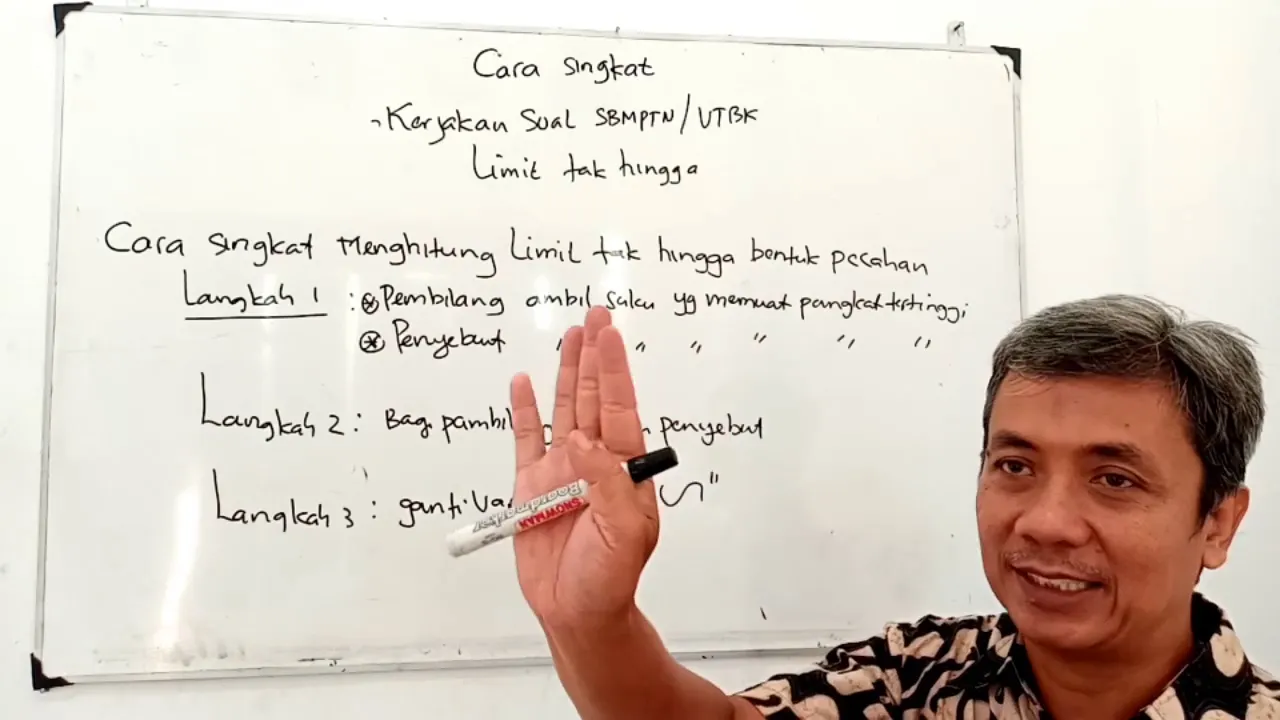 Cara singkat
Kerjakan Soal SBMPTN/UTBK
Limit tak hingga
Cara singkat Menghitung Limit tak hingga bentuk pecahan
Langkah 1 : ⊛ Pembilang ambil suku yg memuat pangkat tertinggi
⊛ Penyebut " " " " " "
Langkah 2 : Bag. pembil penyebut
Langkah 3 : ganti Va ∽"
Boardmarker
SNOWMAN